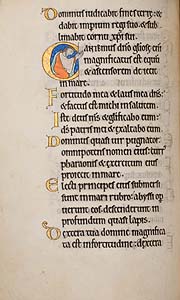 Dominus iudicabit fines terre: &
dabit imperium regi suo & sub
limabit cornu xpi sui.
Cantemus dno gliose eni
magnificatus est equu
& ascensorem deiecit
in mare.
Fortitudo mea & laus mea dns:
& factus est michi in salutem.
Iste deus ms & glificabo eum:
ds patris mei & exaltabo eum.
Dominus quasi vir pugnator
omnipotens nomen eius: currus
pharaonis & exercitum eius
proiecit in mare.
Electi principes eius submersi
sunt in mari rubro: abyssi op
eruerunt eos descenderunt in
profundum quasi lapis.
Dextera tua domine magnifica
ta est in fortitudine: dextera